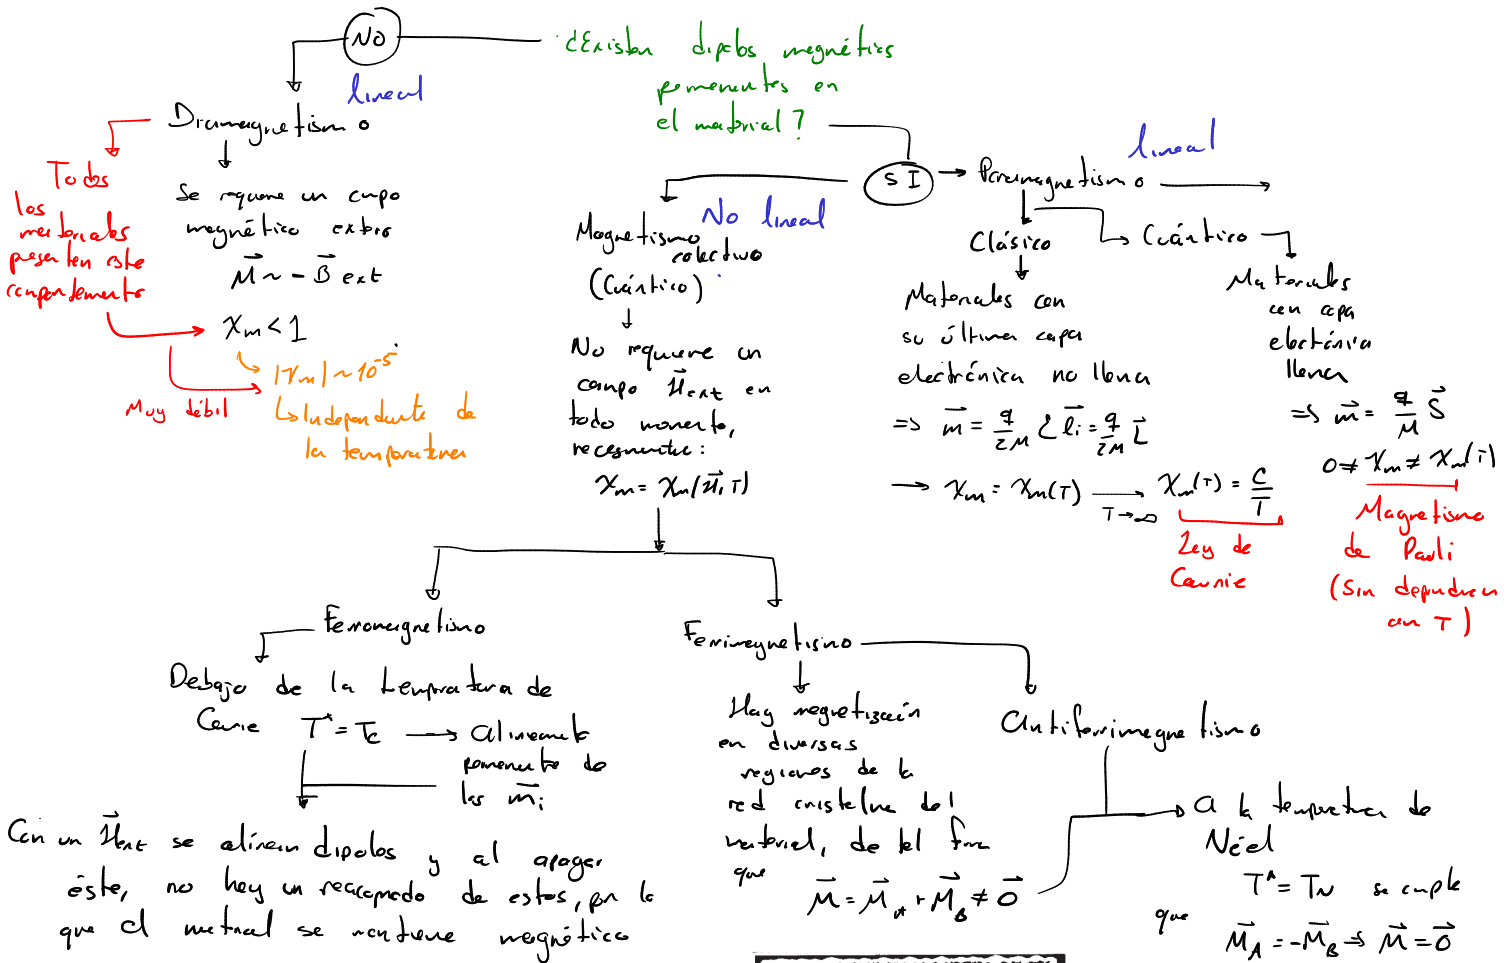 NO
¿Existen dipolos magnéticos
permanentes en
el material?
lineal
Diamagnetismo
Todos
los
materiales
presentan este
comportamiento
Se requiere un campo
magnético externo
M ~ - B ext
χm < 1
|χm| ~ 10^-5
Independiente de
la temperatura
Muy débil
SI
No lineal
Magnetismo
colectivo
(Cuántico)
No requiere un
campo Hext en
todo momento,
necesariamente:
χm = χm(H, T)
Paramagnetismo
lineal
Clásico
Materiales con
su última capa
electrónica no llena
=> m = q/2M Σ li = q/2M L
→ χm = χm(T) → T→∞ χm(T) = C/T
Ley de
Courie
Cuántico
Materiales
con capa
electrónica
llena
=> m = q/M S
0 ≠ χm ≠ χm(T)
Magnetismo
de Pauli
(Sin dependencia
con T)
Ferromagnetismo
Debajo de la temperatura de
Courie T* = Tc → alineamiento
permanente de
los mi
Con un Hext se alinean dipolos y al apagar
éste, no hay un reacomodo de estos, por lo
que el material se mantiene magnético
Ferrimagnetismo
Hay magnetización
en diversas
regiones de la
red cristalina del
material, de tal forma
que
M = MA + MB ≠ 0
Antiferrimagnetismo
A la temperatura de
Néel
T* = TN se cumple
que
MA = -MB => M = 0